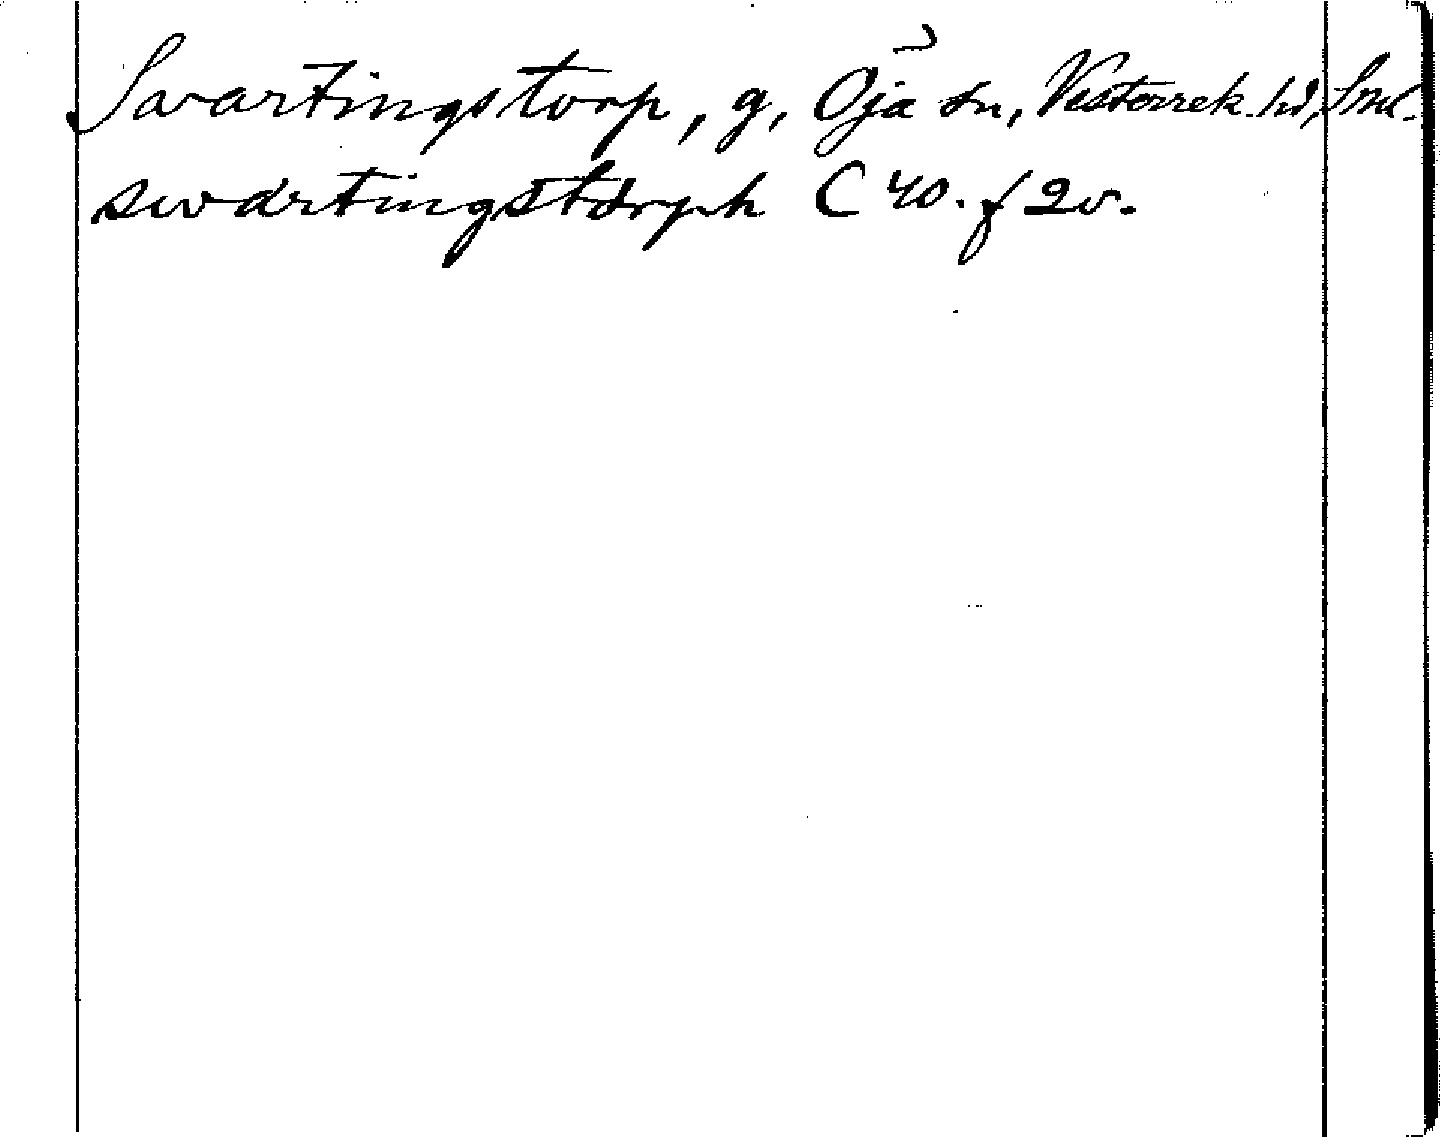 Svartingstorp, g, Öja sn, Västorrek. hd, Sml.
swartingstorph C 40. f 2v.